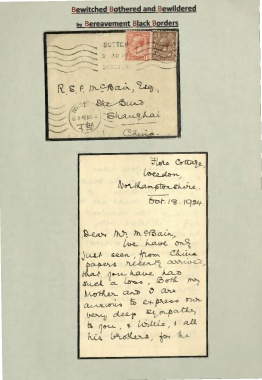 Bewitched Bothered and Bewildered
by Bereavement Black Borders
SUTTON
R.S.F. McBain, Esq.,
1 The Bund
Shanghai
China.
Flore Cottage,
Weedon,
Northamptonshire.
Oct. 18. 1934
Dear Mr. McBain,
We have only
just seen, from China
papers recently arrived
that you have had
such a loss. Both my
Mother and I are
anxious to express our
very deep sympathy
to you, & Willie, & all
his brothers, for the